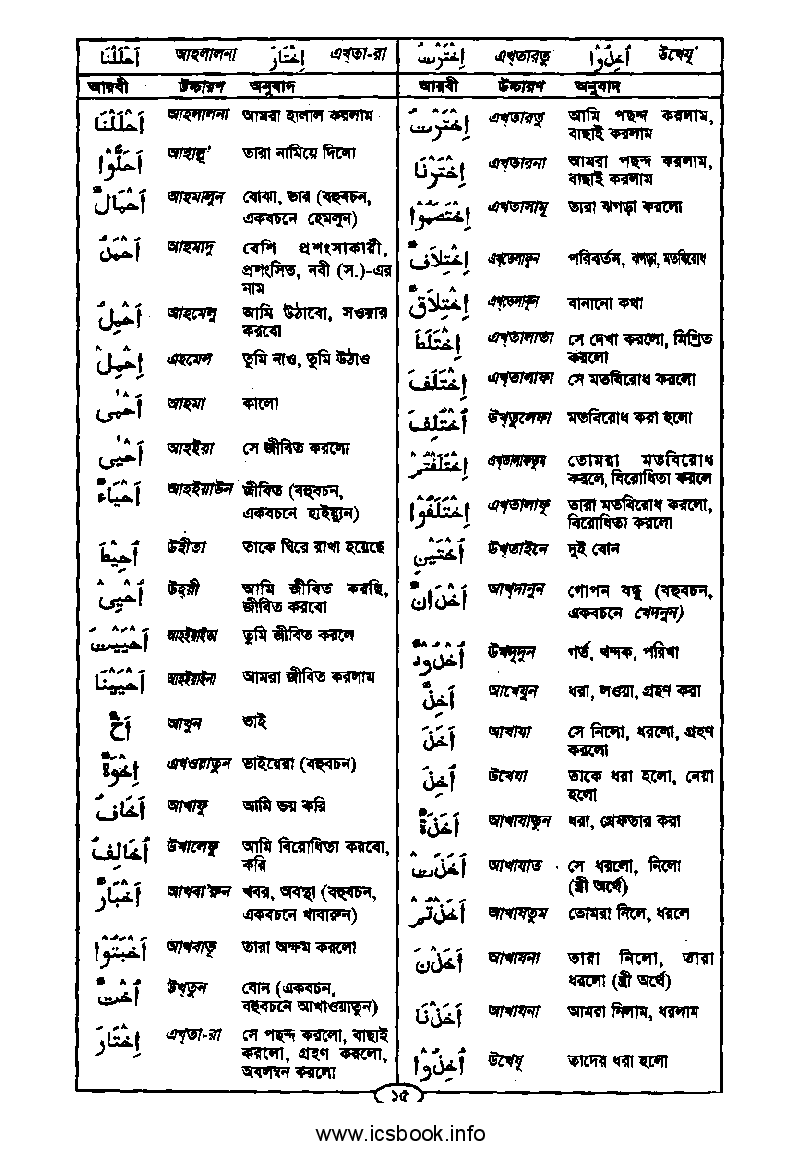 أَحْلَلْنَا আহলালনা إِخْتَارَ এখ্তা-রা
আরবী উচ্চারণ অনুবাদ
أَحْلَلْنَا আহলালনা আমরা হালাল করলাম
أَحَلُّوْا আহাল্লূ তারা নামিয়ে দিলো
أَحْمَالٌ আহমালুন বোঝা, ভার (বহুবচন,
একবচনে হেমলুন)
أَحْمَدُ আহমাদু বেশি প্রশংসাকারী,
প্রশংসিত, নবী (স.)-এর
নাম
أَحْمِلُ আহমেলু আমি উঠাবো, সওয়ার
করবো
إِحْمِلْ এহমেল তুমি নাও, তুমি উঠাও
أَحْوٰى আহমা কালো
أَحْيٰى আহইয়া সে জীবিত করলো
أَحْيَاءٌ আহইয়াউন জীবিত (বহুবচন,
একবচনে হাইয়্যুন)
أُحِيْطَ উহীতা তাকে ঘিরে রাখা হয়েছে
أُحْيِىْ উহ্য়ী আমি জীবিত করছি,
জীবিত করবো
أَحْيَيْتَ আহইয়াইতা তুমি জীবিত করলে
أَحْيَيْنَا আহইয়াইনা আমরা জীবিত করলাম
أَخٌ আখুন ভাই
إِخْوَةٌ এখওয়াতুন ভাইয়েরা (বহুবচন)
أَخَافُ আখাফু আমি ভয় করি
أُخَالِفُ উখালেফু আমি বিরোধিতা করবো,
করি
أَخْبَارٌ আখবা'রুন খবর, অবস্থা (বহুবচন,
একবচনে খাবারুন)
أَخْبَتُوْا আখবাতূ তারা অক্ষম করলো
أُخْتٌ উখ্তুন বোন (একবচন,
বহুবচনে আখাওয়াতুন)
إِخْتَارَ এখ্তা-রা সে পছন্দ করলো, বাছাই
করলো, গ্রহণ করলো,
অবলম্বন করলো
إِخْتَرْتُ এখ্তারতু أُخِذُوْا উখেযূ
আরবী উচ্চারণ অনুবাদ
إِخْتَرْتُ এখ্তারতু আমি পছন্দ করলাম,
বাছাই করলাম
إِخْتَرْنَا এখ্তারনা আমরা পছন্দ করলাম,
বাছাই করলাম
إِخْتَصَمُوْا এখ্তাসামূ তারা ঝগড়া করলো
إِخْتِلَافٌ এখ্তেলাফুন পরিবর্তন, ঝগড়া, মতবিরোধ
إِخْتِلَاقٌ এখ্তেলাকুন বানানো কথা
إِخْتَلَطَ এখ্তালাতা সে দেখা করলো, মিশ্রিত
করলো
إِخْتَلَفَ এখ্তালাফা সে মতবিরোধ করলো
أُخْتُلِفَ উখ্তুলেফা মতবিরোধ করা হলো
إِخْتَلَفْتُمْ এখ্তালাফতুম তোমরা মতবিরোধ
করলে, বিরোধিতা করলে
إِخْتَلَفُوْا এখ্তালাফূ তারা মতবিরোধ করলো,
বিরোধিতা করলো
أُخْتَيْنِ উখ্তাইনে দুই বোন
أَخْدَانٌ আখ্দানুন গোপন বন্ধু (বহুবচন,
একবচনে খেদনুন)
أُخْدُوْدٌ উখদূদুন গর্ত, খন্দক, পরিখা
أَخْذٌ আখেযুন ধরা, লওয়া, গ্রহণ করা
أَخَذَ আখাযা সে নিলো, ধরলো, গ্রহণ
করলো
أُخِذَ উখেযা তাকে ধরা হলো, নেয়া
হলো
أَخْذَةٌ আখাযাতুন ধরা, গ্রেফতার করা
أَخَذَتْ আখাযাত সে ধরলো, নিলো
(স্ত্রী অর্থে)
أَخَذْتُمْ আখাযতুম তোমরা নিলে, ধরলে
أَخَذْنَ আখাযনা তারা নিলো, তারা
ধরলো (স্ত্রী অর্থে)
أَخَذْنَا আখাযনা আমরা নিলাম, ধরলাম
أُخِذُوْا উখেযূ তাদের ধরা হলো
১৫
www.icsbook.info